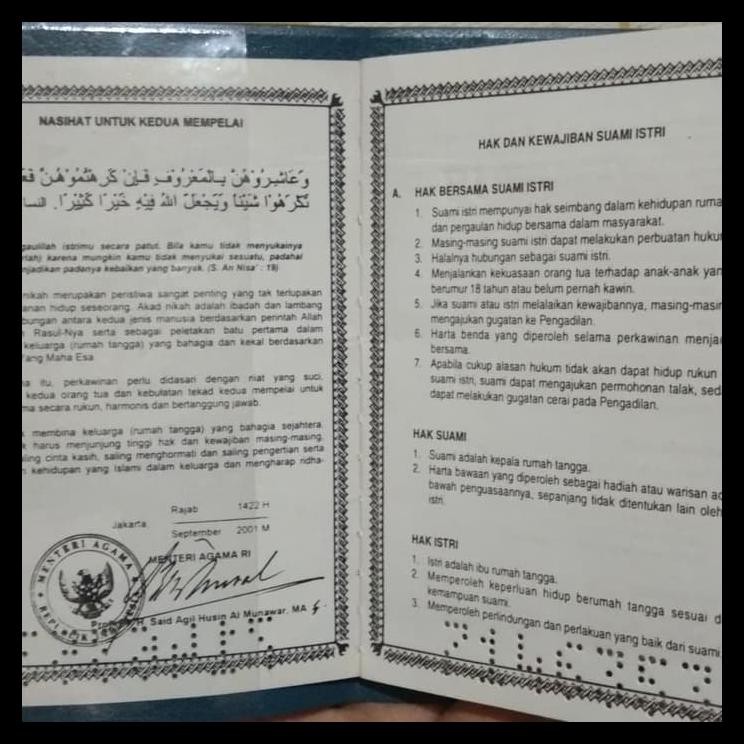 NASIHAT UNTUK KEDUA MEMPELAI
وَعَاشِرُوْهُنَّ بِالْمَعْرُوْفِ فَإِنْ كَرِهْتُمُوْهُنَّ
تَكْرَهُوْا شَيْئًا وَيَجْعَلَ اللهُ فِيْهِ خَيْرًا كَثِيْرًا.
istrimu secara patut. Bila kamu tidak menyukainya
karena mungkin kamu tidak menyukai sesuatu, padahal
padanya kebaikan yang banyak. (S. An Nisa' : 19)
nikah merupakan peristiwa sangat penting yang tak terlupakan
hidup seseorang. Akad nikah adalah ibadah dan lambang
antara kedua jenis manusia berdasarkan perintah Allah
Rasul-Nya serta sebagai peletakan batu pertama dalam
keluarga (rumah tangga) yang bahagia dan kekal berdasarkan
Yang Maha Esa.
itu, perkawinan perlu didasari dengan niat yang suci,
kedua orang tua dan kebulatan tekad kedua mempelai untuk
secara rukun, harmonis dan bertanggung jawab.
membina keluarga (rumah tangga) yang bahagia sejahtera,
harus menjunjung tinggi hak dan kewajiban masing-masing,
cinta kasih, saling menghormati dan saling pengertian serta
kehidupan yang Islami dalam keluarga dan mengharap ridha-
Rajab 1422 H
Jakarta,
September 2001 M
MENTERI AGAMA RI
MENTERI AGAMA
H. Said Agil Husin Al Munawar, MA
HAK DAN KEWAJIBAN SUAMI ISTRI
A. HAK BERSAMA SUAMI ISTRI
1. Suami istri mempunyai hak seimbang dalam kehidupan
dan pergaulan hidup bersama dalam masyarakat.
2. Masing-masing suami istri dapat melakukan perbuatan
3. Halalnya hubungan sebagai suami istri.
4. Menjalankan kekuasaan orang tua terhadap anak-anak
berumur 18 tahun atau belum pernah kawin.
5. Jika suami atau istri melalaikan kewajibannya,
mengajukan gugatan ke Pengadilan.
6. Harta benda yang diperoleh selama perkawinan
bersama.
7. Apabila cukup alasan hukum tidak akan dapat hidup rukun
suami istri, suami dapat mengajukan permohonan talak,
dapat melakukan gugatan cerai pada Pengadilan.
HAK SUAMI
1. Suami adalah kepala rumah tangga.
2. Harta bawaan yang diperoleh sebagai hadiah atau warisan
bawah penguasaannya, sepanjang tidak ditentukan lain oleh
istri.
HAK ISTRI
1. Istri adalah ibu rumah tangga.
2. Memperoleh keperluan hidup berumah tangga sesuai
kemampuan suami.
3. Memperoleh perlindungan dan perlakuan yang baik dari suami